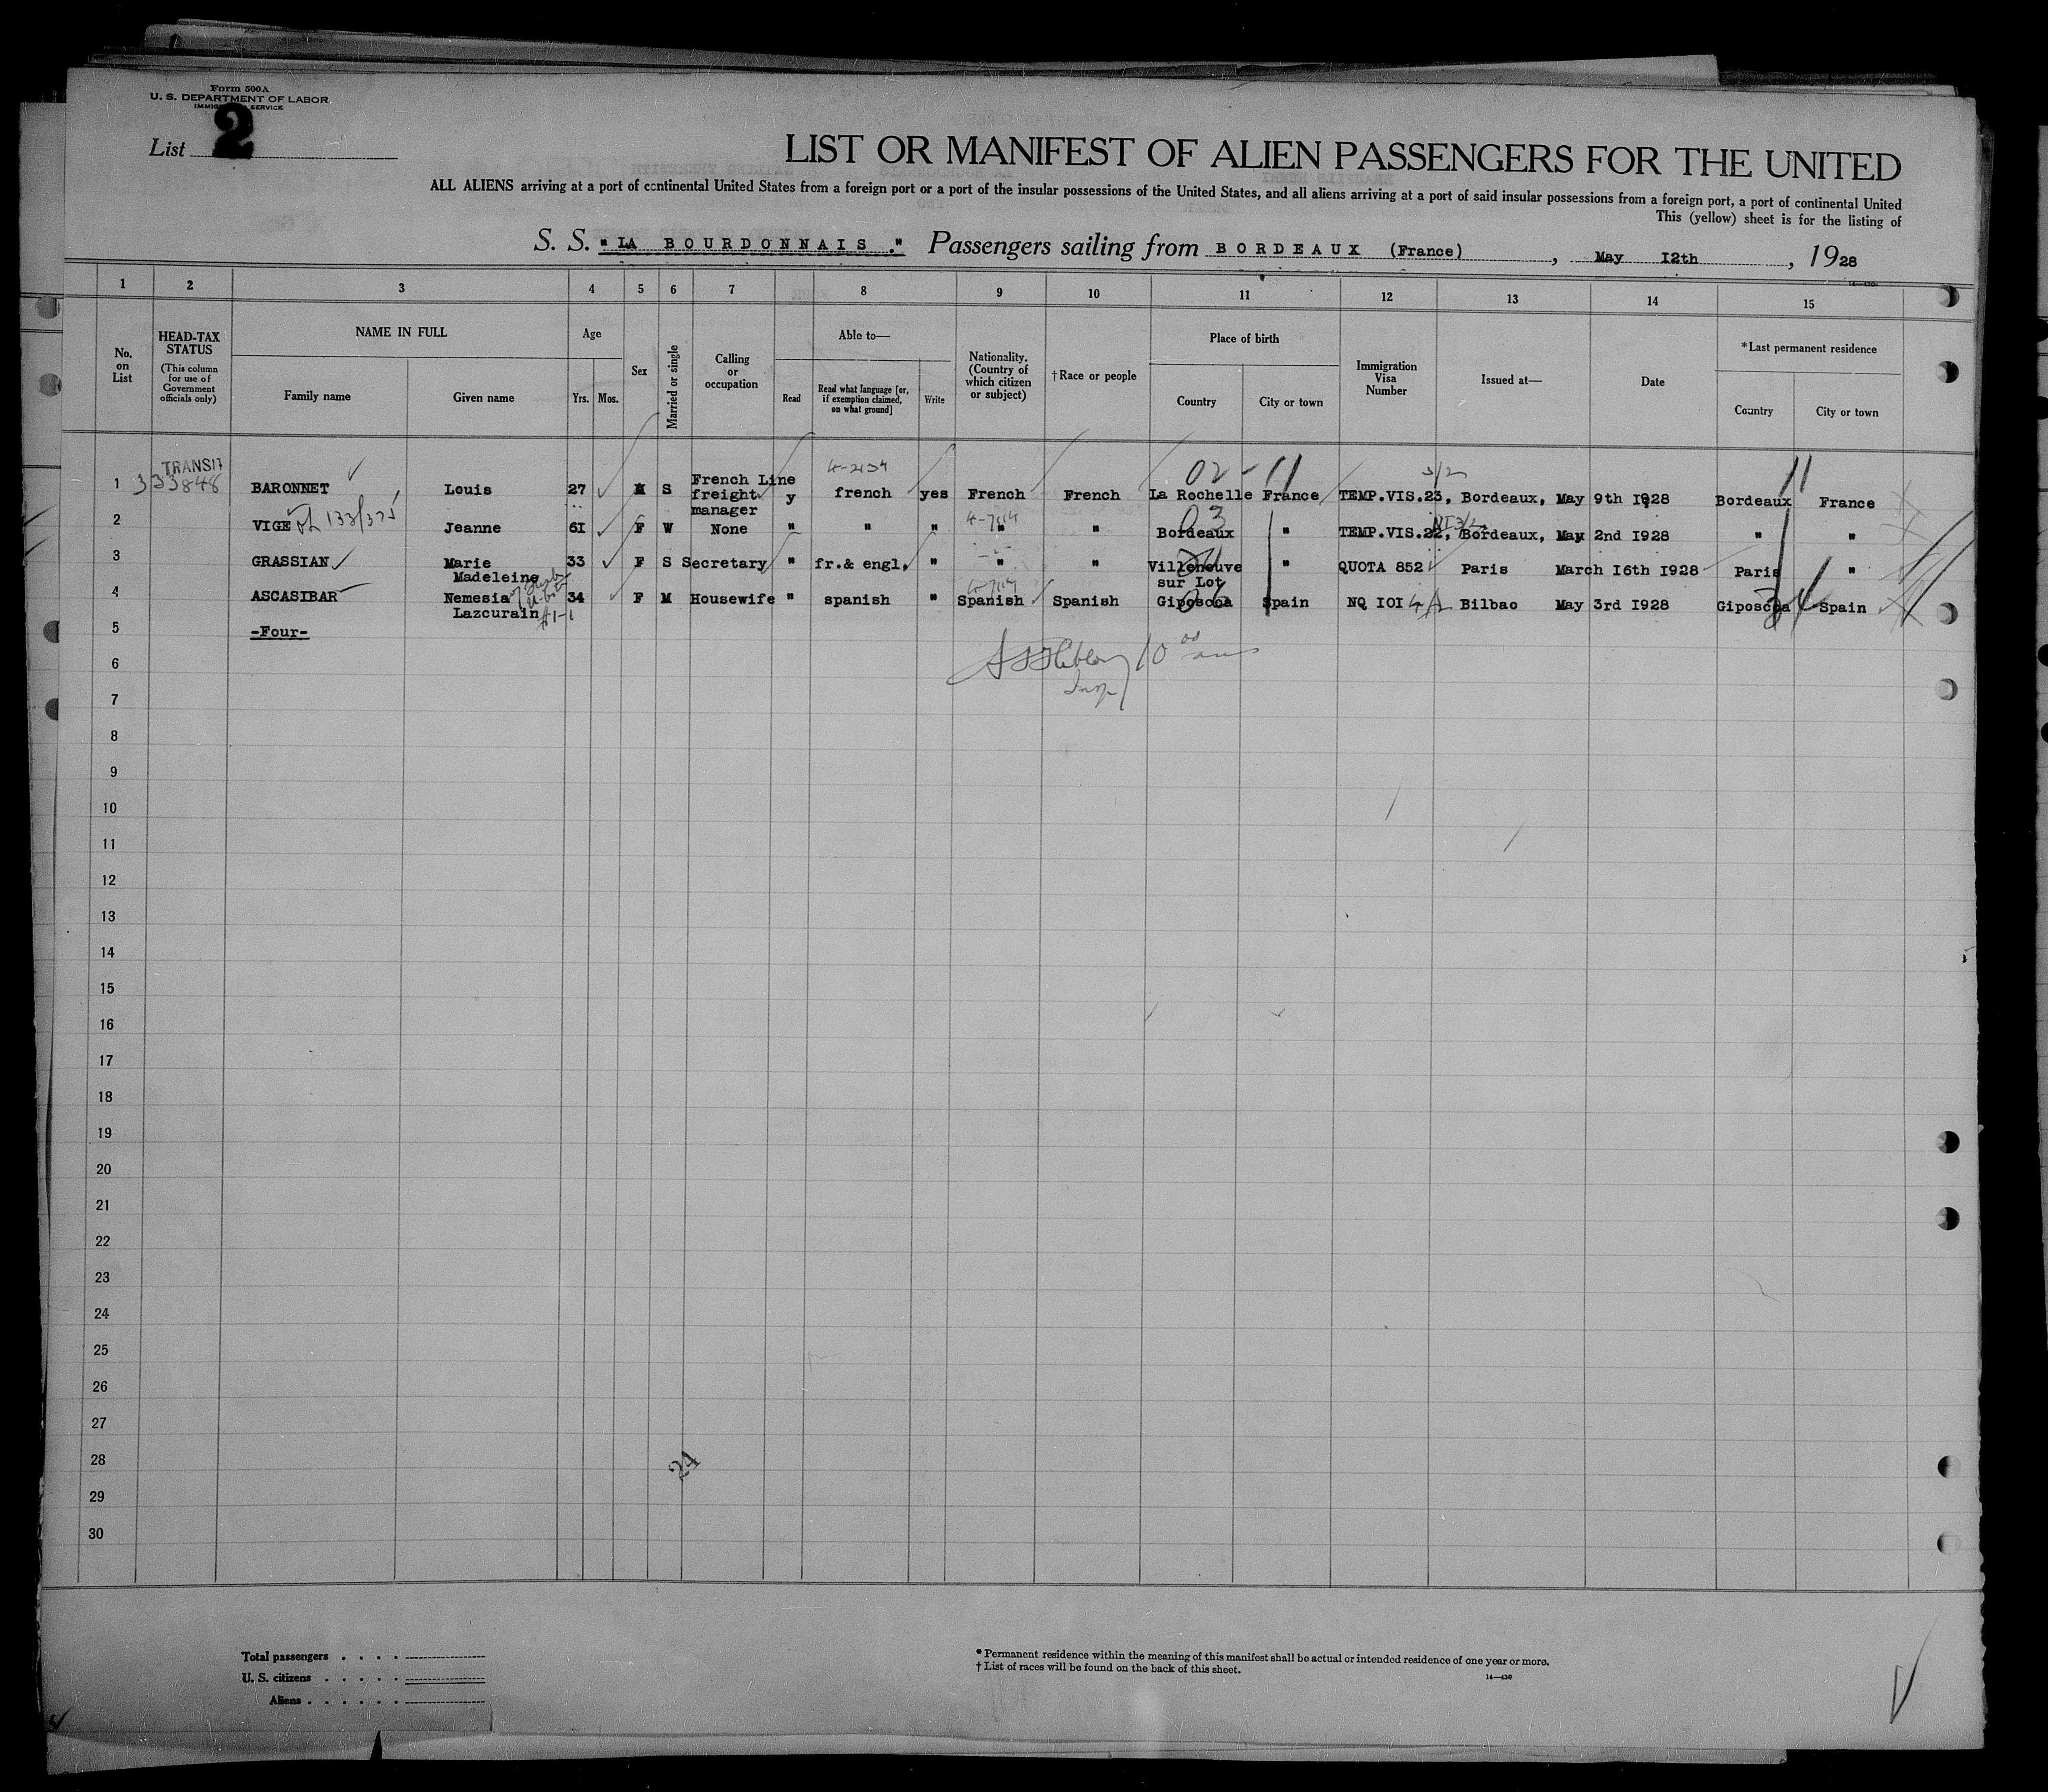 Form 500A
U. S. DEPARTMENT OF LABOR
IMMIGRATION SERVICE
List 2
LIST OR MANIFEST OF ALIEN PASSENGERS FOR THE UNITED
ALL ALIENS arriving at a port of continental United States from a foreign port or a port of the insular possessions of the United States, and all aliens arriving at a port of said insular possessions from a foreign port, a port of continental United
This (yellow) sheet is for the listing of
S. S. "LA BOURDONNAIS." Passengers sailing from BORDEAUX (France), May I2th, 1928
1 2 3 4 5 6 7 8 9 10 11 12 13 14 15
No. on List
HEAD-TAX STATUS
(This column for use of Government officials only)
NAME IN FULL
Family name
Given name
Age
Yrs.
Mos.
Sex
Married or single
Calling or occupation
Able to—
Read
Read what language [or, if exemption claimed, on what ground]
Write
Nationality. (Country of which citizen or subject)
†Race or people
Place of birth
Country
City or town
Immigration Visa Number
Issued at—
Date
*Last permanent residence
Country
City or town
TRANSIT
333848
02-11
1 BARONNET Louis 27 M S French Line freight manager y french yes French French La Rochelle France TEMP.VIS.23, Bordeaux, May 9th I928 Bordeaux France
2 VIGE 133/375 Jeanne 6I F W None " " " " " Bordeaux " TEMP.VIS.22, Bordeaux, May 2nd I928 " "
3 GRASSIAN Marie Madeleine 33 F S Secretary " fr.& engl. " " " Villeneuve sur Lot " QUOTA 852 Paris March I6th I928 Paris "
4 ASCASIBAR Nemesia Lazcurain 34 F M Housewife " spanish " Spanish Spanish Giposcoa Spain NQ IOI Bilbao May 3rd I928 Giposcoa Spain
5 -Four-
6
7
8
9
10
11
12
13
14
15
16
17
18
19
20
21
22
23
24
25
26
27
28
29
30
24
Total passengers . . . .
U. S. citizens . . . . .
Aliens . . . . . .
* Permanent residence within the meaning of this manifest shall be actual or intended residence of one year or more.
† List of races will be found on the back of this sheet.
14—430